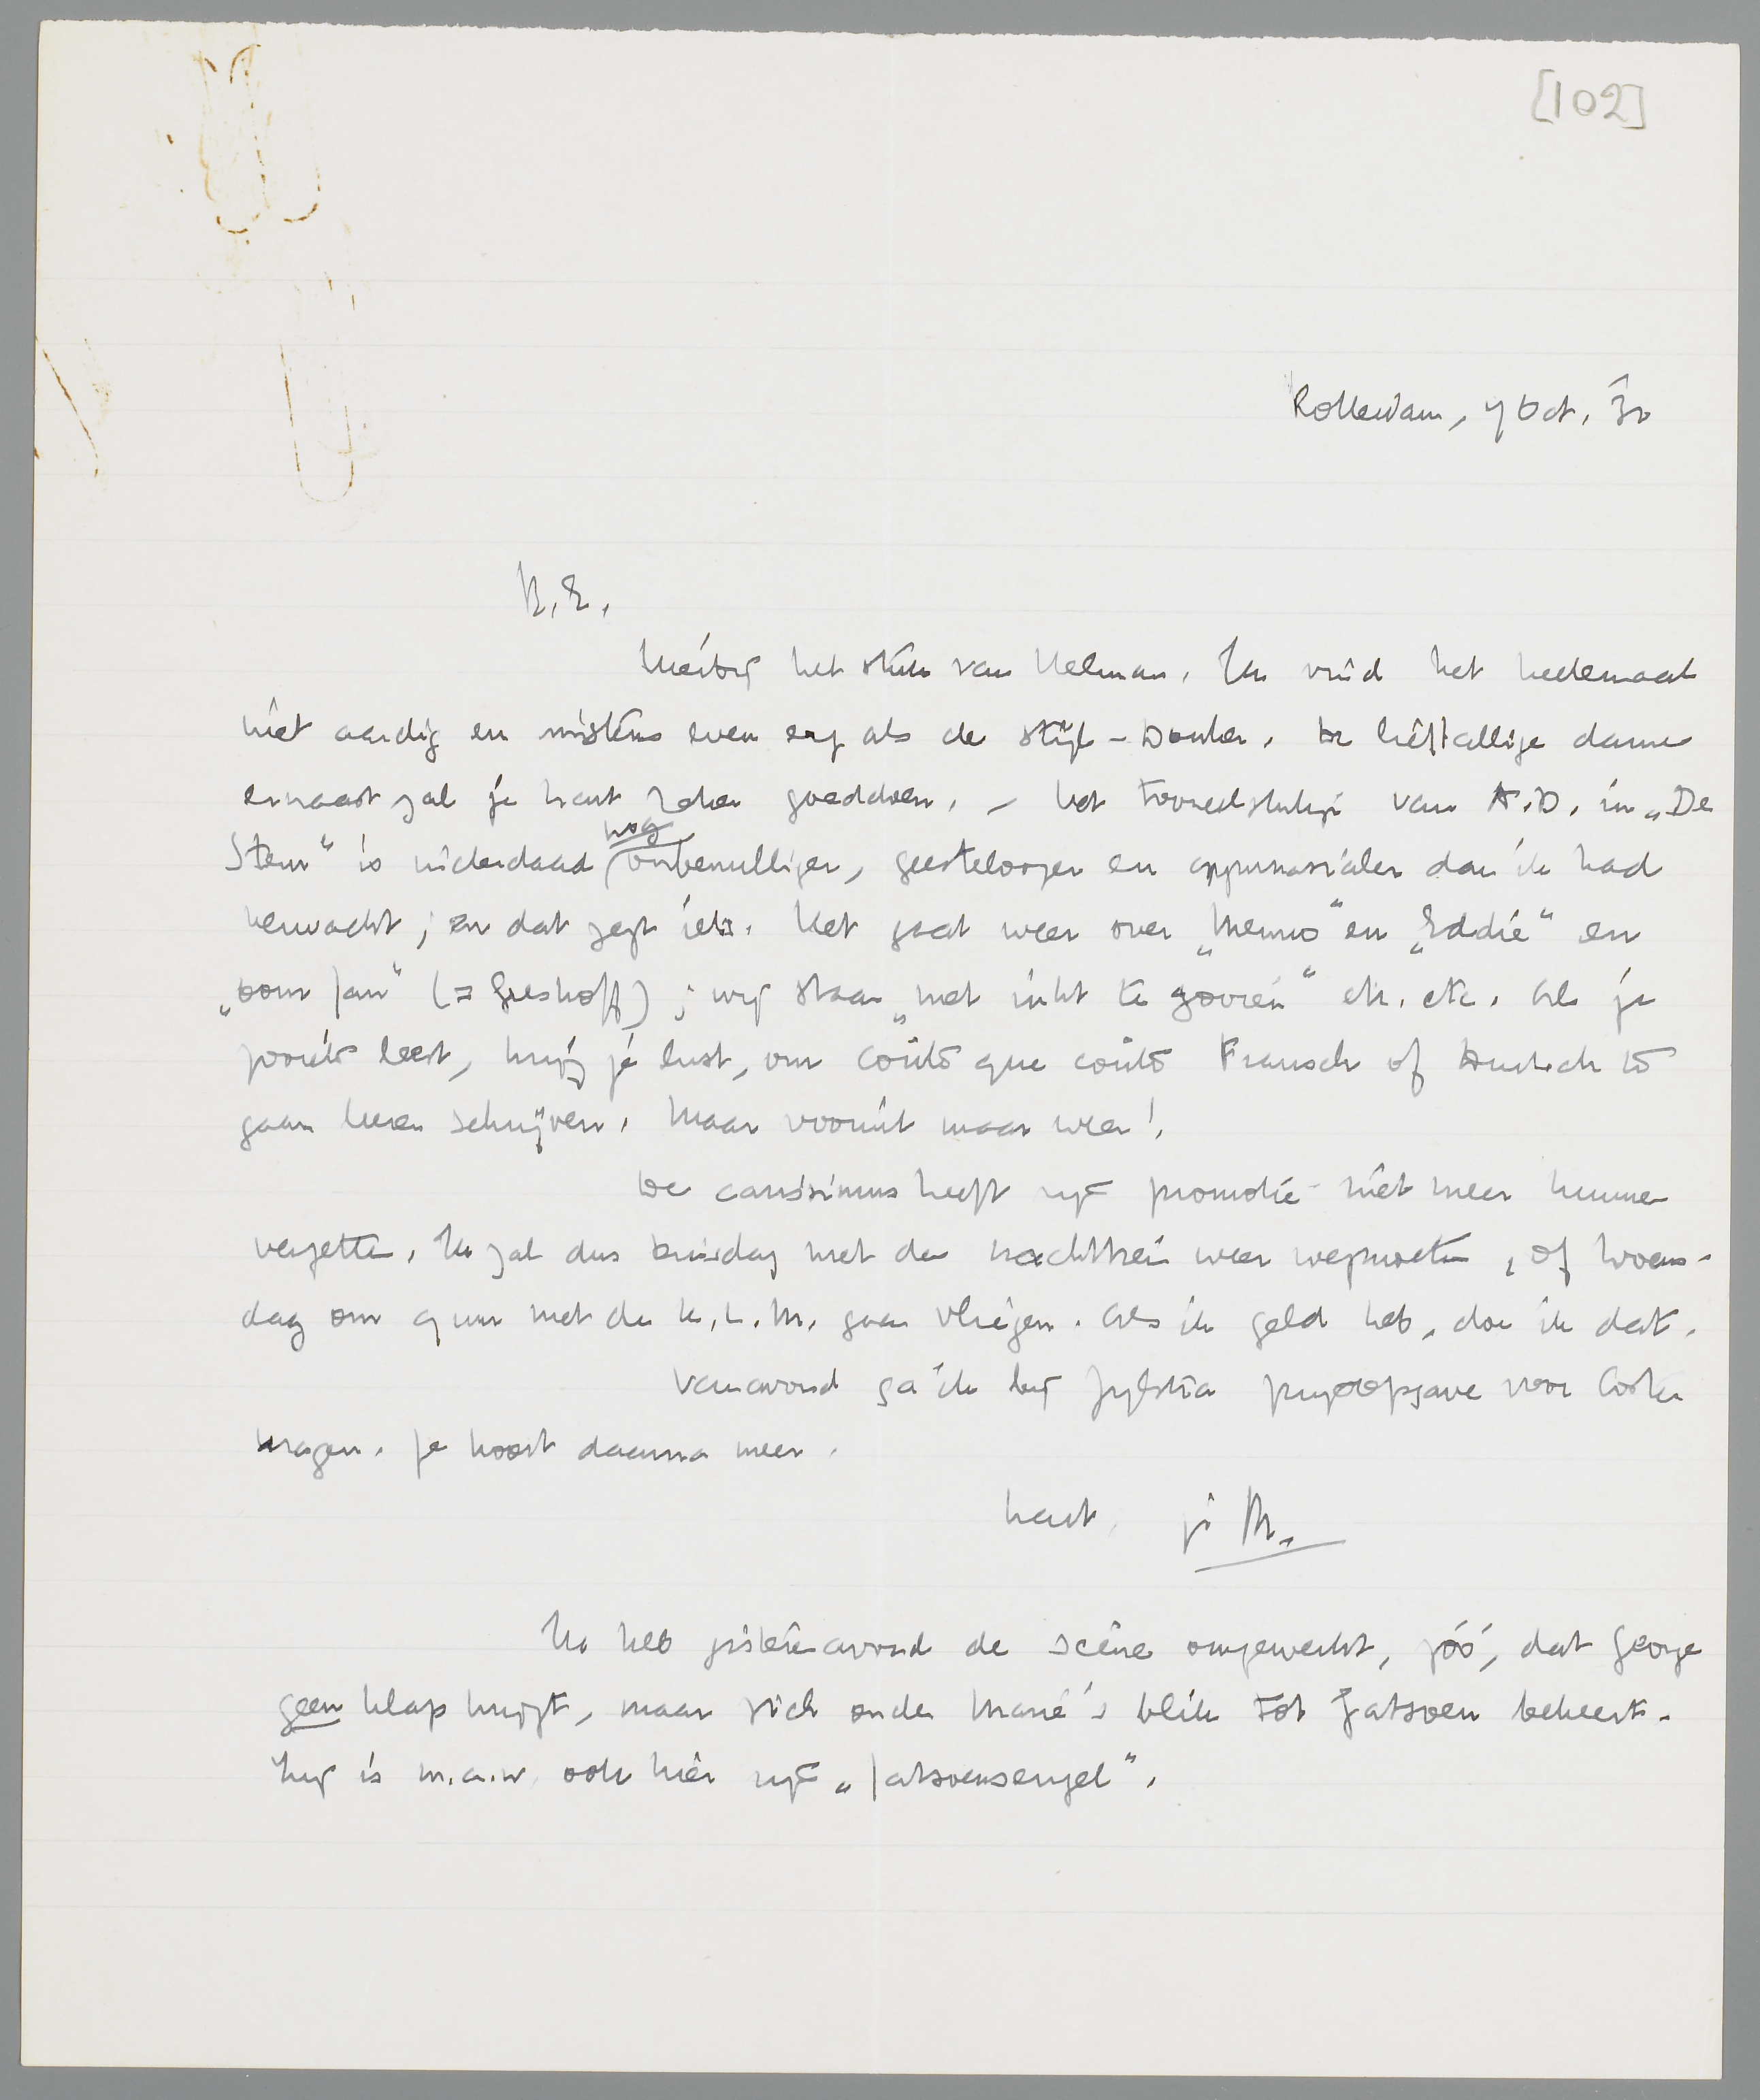 [102]
Rotterdam, 7 Oct. 32
B.E.
Hierbij het stuk van Helman. Ik vind het heelemaal
niet aardig en minstens even erg als de stijl-Donker. De lieftallige dame
ernaast zal je hart zeker goeddoen. – Het tooneelstukje van A.D. in „De
Stem“ is inderdaad nog onbenulliger, geesteloozer en gymnasialer dan ik had
verwacht; en dat zegt iets. Het gaat weer over „Menno“ en „Eddie“ en
„oom Jan“ (= Greshoff); wij staan „met inkt te gooien“ etc. etc. Als je
zooiets leest, krijg je lust, om coûte que coûte Fransch of Duitsch te
gaan leeren schrijven. Maar vooruit maar weer!
De carissimus heeft zijn promotie niet meer kunnen
verzetten. Ik zal dus Dinsdag met den nachttrein weer wegmoeten, of Woens-
dag om 9 uur met de K.L.M. gaan vliegen. Als ik geld heb, doe ik dat.
Vanavond ga ik bij Zijlstra prijsopgave voor Coster
vragen. Je hoort daarna meer.
hart. je M.
Ik heb gisterenavond de scène omgewerkt, zóó, dat George
geen klap krijgt, maar zich onder Marie's blik tot fatsoen bekeert.
Hij is m.a.w. ook hier zijn „fatsoensengel“.